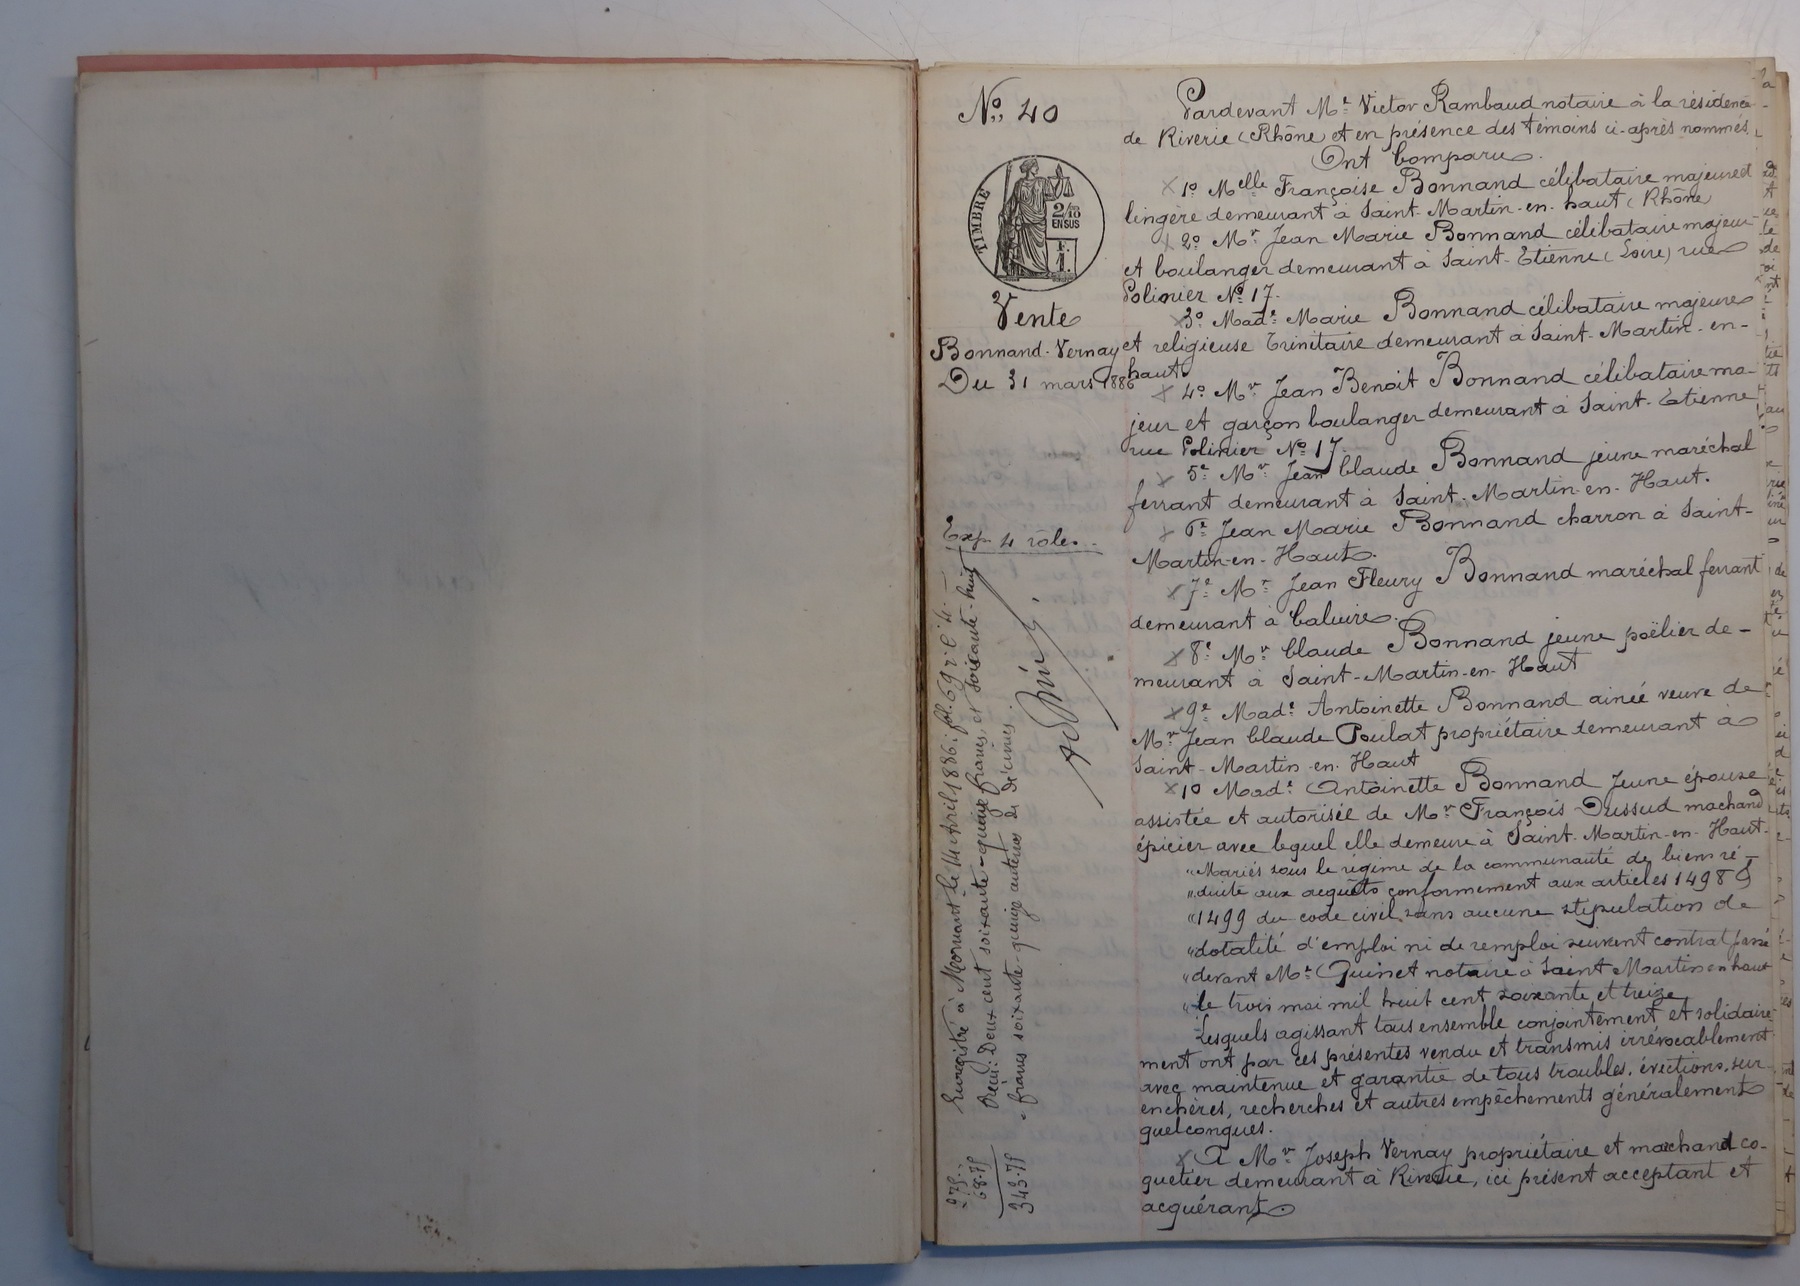 N° 40
TIMBRE
2/10
EN SUS
F.
1.
Vente
Bonnand-Vernay
Du 31 mars 1886
Exp. 4 rôles.
Enregistré à Mornant le Avril 1886: fol. 69 r. C. 4. –
Reçu: Deux cent soixante-quinze francs, et soixante-huit
francs soixante-quinze centimes de décimes.
275.
68.75
343.75
Pardevant Me Victor Rambaud notaire à la résidence
de Riverie (Rhône) et en présence des témoins ci-après nommés,
Ont Comparu.
1° Melle Françoise Bonnand célibataire majeure et
lingère demeurant à Saint-Martin-en-haut (Rhône)
2° Mr Jean Marie Bonnand célibataire majeur
et boulanger demeurant à Saint-Etienne (Loire) rue
Polinier N° 17.
3° Made Marie Bonnand célibataire majeure
et religieuse Trinitaire demeurant à Saint-Martin-en-
haut.
4° Mr Jean Benoit Bonnand célibataire ma-
jeur et garçon boulanger demeurant à Saint-Etienne
rue Polinier N° 17.
5e Mr Jean Claude Bonnand jeune maréchal
ferrant demeurant à Saint-Martin-en-Haut.
6e Jean Marie Bonnand charron à Saint-
Martin-en-Haut.
7e Mr Jean Fleury Bonnand maréchal ferrant
demeurant à Caluire.
8e Mr Claude Bonnand jeune poëlier de-
meurant à Saint-Martin-en-Haut
9e Made Antoinette Bonnand ainée veuve de
Mr Jean Claude Poulat propriétaire demeurant à
Saint-Martin-en-Haut
10 Made Antoinette Bonnand Jeune épouse
assistée et autorisée de Mr François Dussud machand
épicier avec lequel elle demeure à Saint-Martin-en-Haut.
"Mariés sous le régime de la communauté de biens ré-
"duite aux acquêts conformement aux articles 1498 &
"1499 du code civil sans aucune stipulation de
"dotalité d'emploi ni de remploi suivant contrat passé
"devant Me Guinet notaire à Saint Martin en haut
"le trois mai mil huit cent soixante et treize
Lesquels agissant tous ensemble conjointement et solidaire-
ment ont par ces présentes vendu et transmis irrévocablement
avec maintenue et garantie de tous troubles, évictions, sur-
enchères, recherches et autres empêchements généralement
quelconques.
A Mr Joseph Vernay propriétaire et machand co-
quetier demeurant à Riverie, ici présent acceptant et
acquérant.